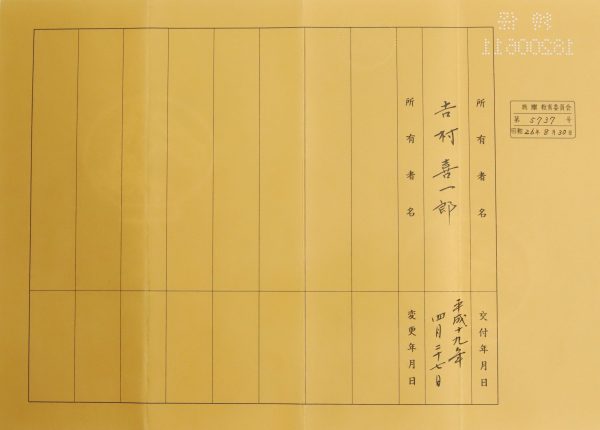 所有者名
吉村喜一郎
所有者名
交付年月日
平成十九年
四月二十七日
変更年月日
教育委員会
第 5737 号
昭和 26年 8月 30日